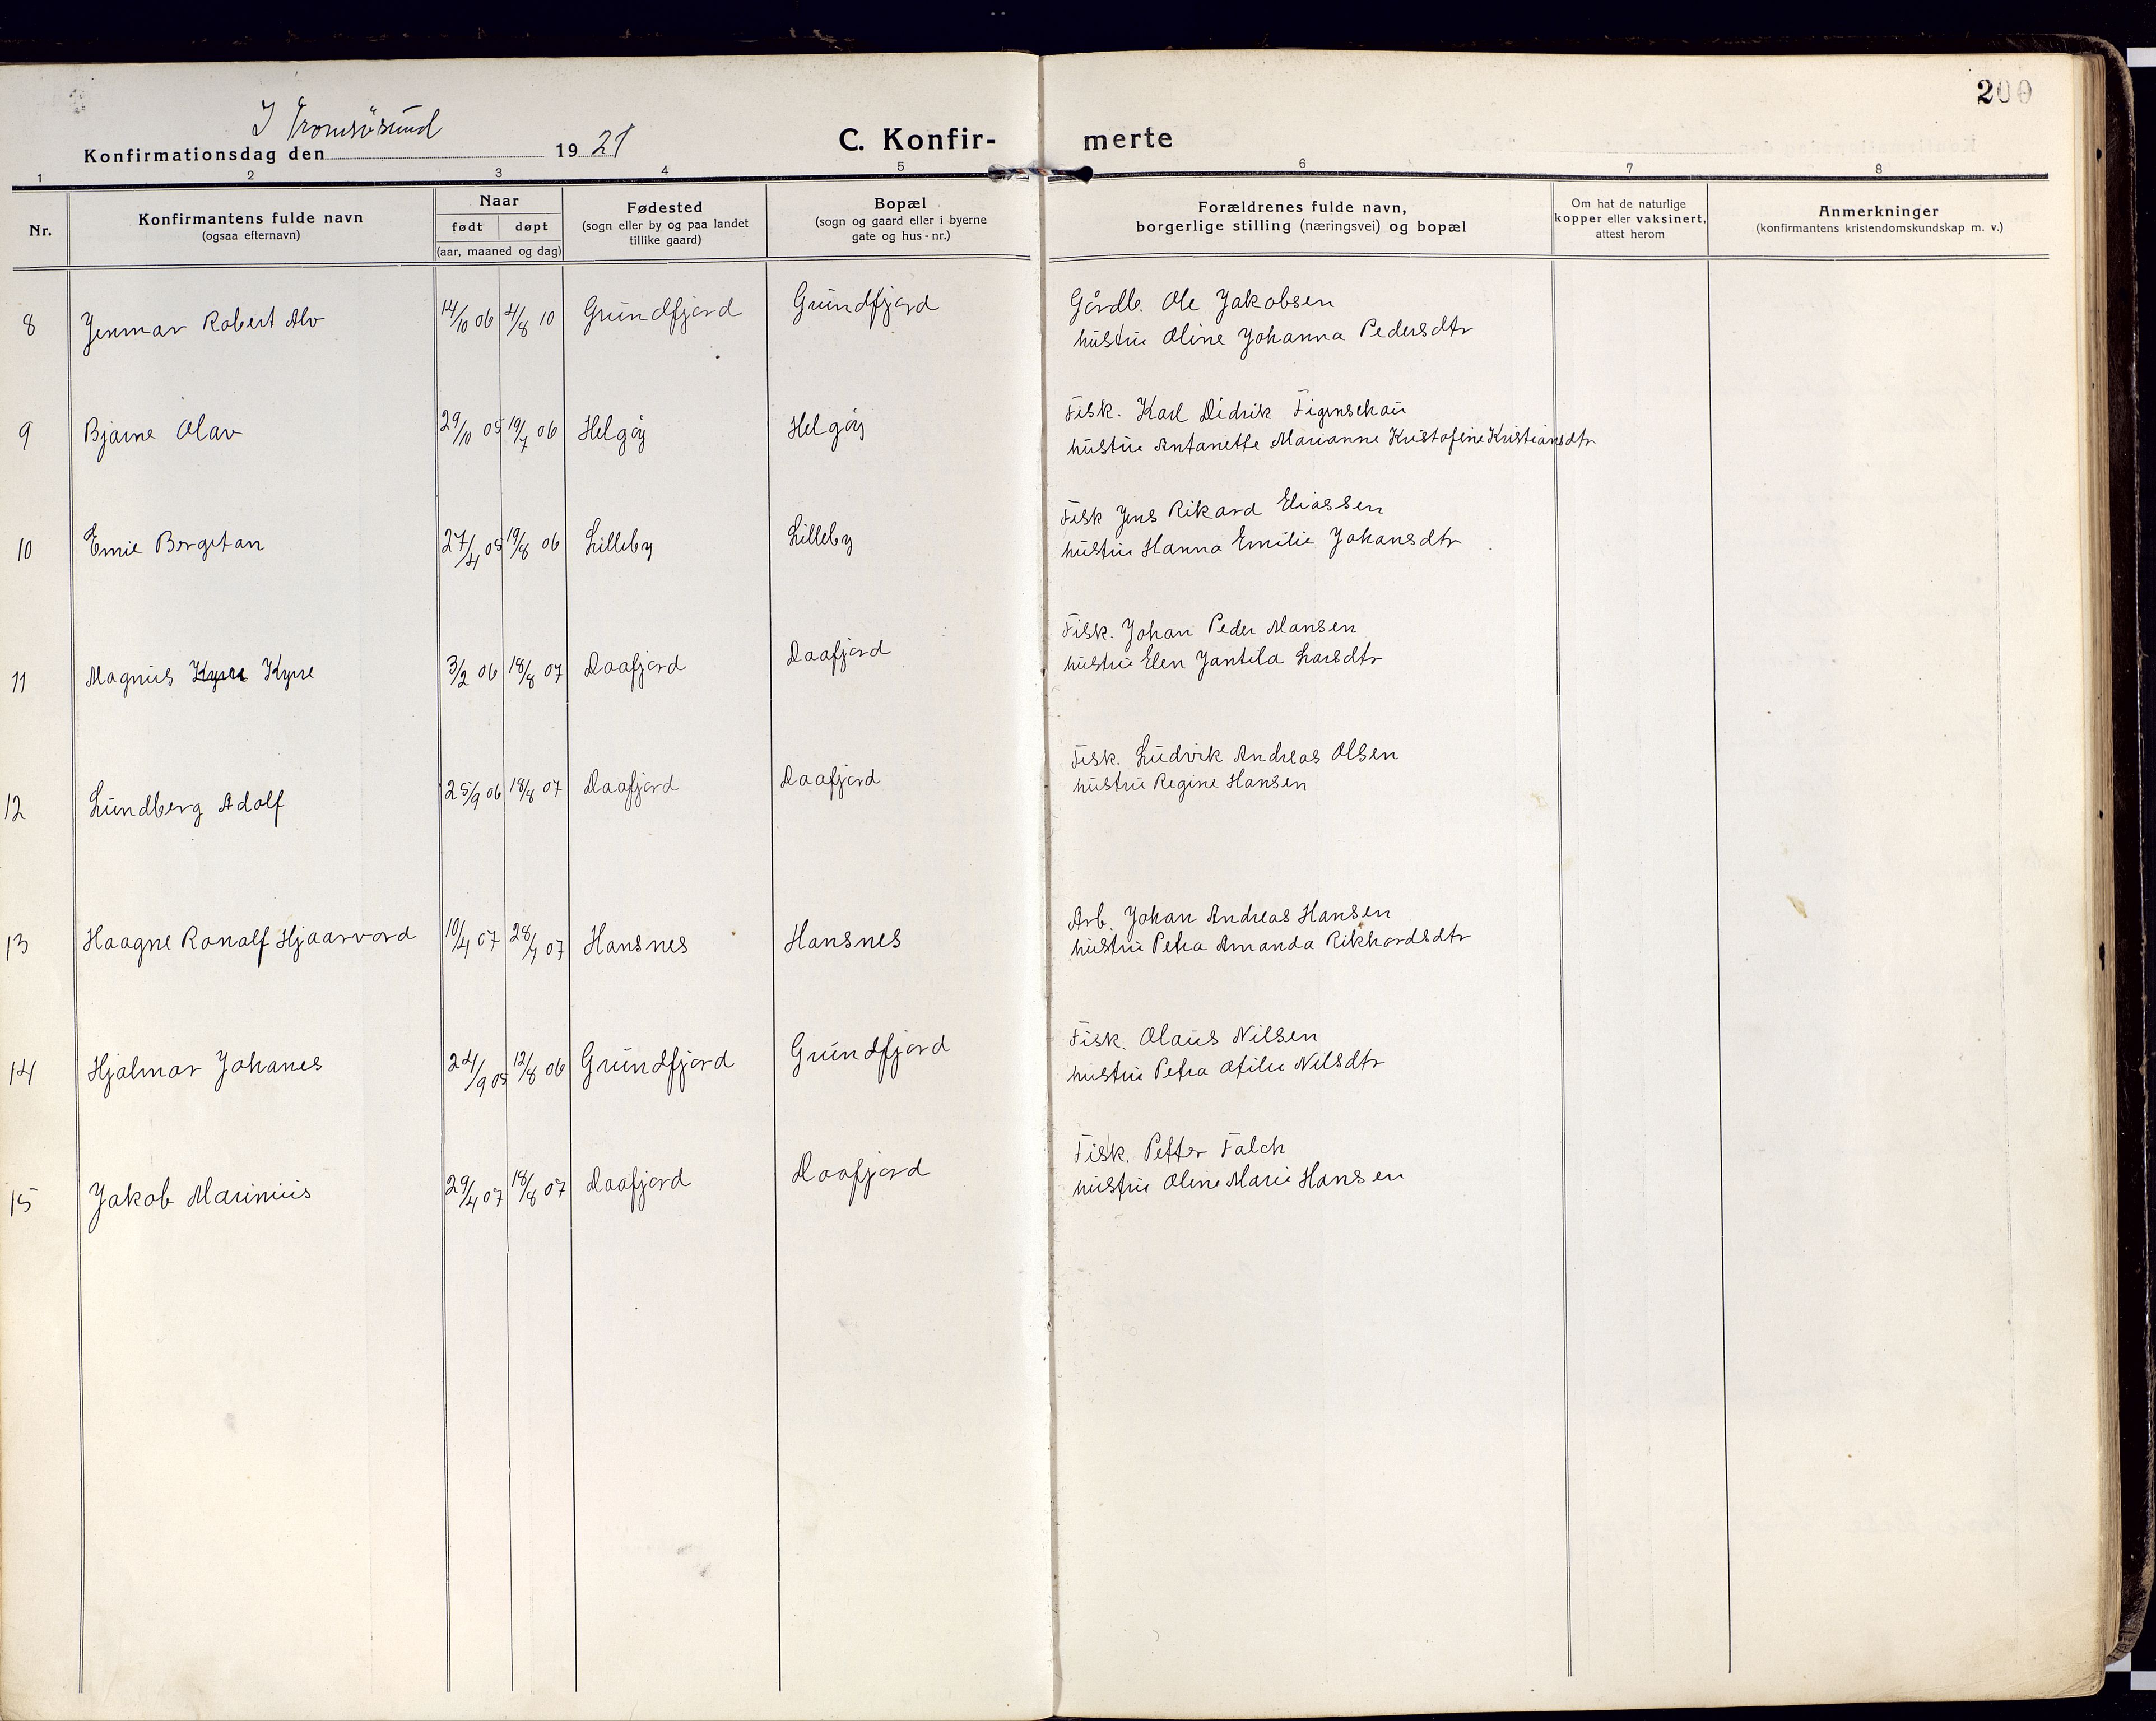 200
I Tromsøsund
Konfirmationsdag den 1921
C. Konfir-merte
1 2 3 4 5 6 7 8
Nr.
Konfirmantens fulde navn
(ogsaa efternavn)
Naar
født døpt
(aar, maaned og dag)
Fødested
(sogn eller by og paa landet
tillike gaard)
Bopæl
(sogn og gaard eller i byerne
gate og hus-nr.)
Forældrenes fulde navn,
borgerlige stilling (næringsvei) og bopæl
Om hat de naturlige
kopper eller vaksinert,
attest herom
Anmerkninger
(konfirmantens kristendomskundskap m. v.)
8 Jenmar Robert Alv 14/10 06 4/8 10 Grundfjord Grundfjord Gårdb. Ole Jakobsen
hustru Oline Johanna Pedersdtr
9 Bjarne Olav 29/10 05 19/7 06 Helgøy Helgøy Fisk. Karl Didrik Figenschau
hustru Antanette Marianne Kristofine Kristiansdtr
10 Emil Bergitan 27/4 05 19/8 06 Lilleby Lilleby Fisk Jens Rikard Eliassen
hustru Hanna Emilie Johansdtr
11 Magnus Kyrre 3/2 06 18/8 07 Daafjord Daafjord Fisk. Johan Peder Mansen
hustru Elen Jantila Larsdtr
12 Lundberg Adolf 25/9 06 18/8 07 Daafjord Daafjord Fisk. Ludvik Andreas Olsen
hustru Regine Hansen
13 Haagne Ranalf Hjaarvard 10/4 07 28/7 07 Hansnes Hansnes Arb. Johan Andreas Hansen
hustru Petra Amanda Rikhardsdtr
14 Hjalmar Johanes 24/9 05 12/8 06 Grundfjord Grundfjord Fisk. Olaus Nilsen
hustru Petra Otilie Nilsdtr
15 Jakob Marinius 29/4 07 18/8 07 Daafjord Daafjord Fisk. Petter Falch
hustru Oline Marie Hansen